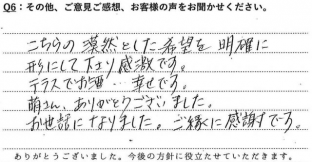 Q6：その他、ご意見ご感想、お客様の声をお聞かせください。
こちらの漠然とした希望を明確に
形にして下さり感激です。
テラスでお酒‥幸せです。
萌さん、ありがとうございました。
お世話になりました。ご縁に感謝です。
ありがとうございました。今後の方針に役立たせていただきます。